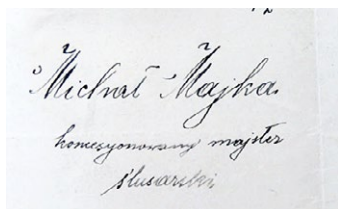 Michał Majka
koncesyonowany majster
ślusarski